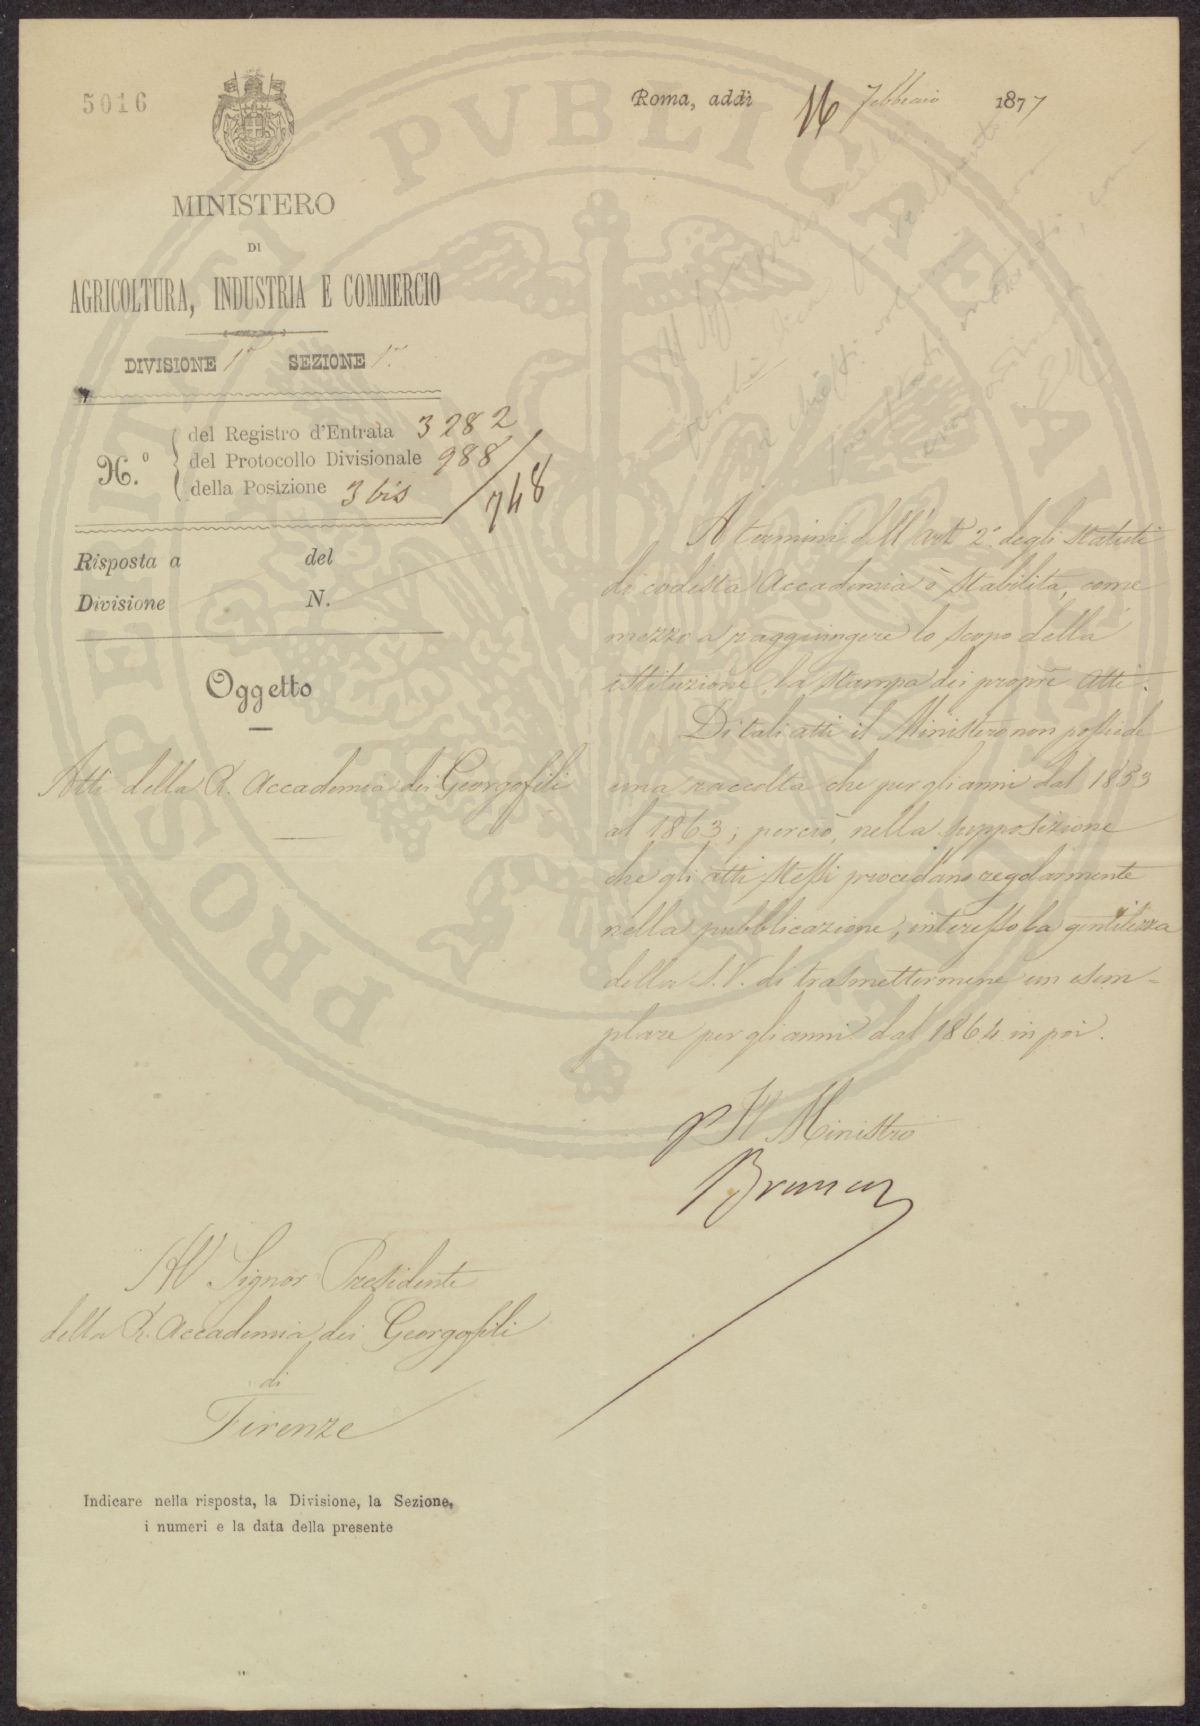 5016
Roma, addì 16 Febbraio 1877
MINISTERO
DI
AGRICOLTURA, INDUSTRIA E COMMERCIO
DIVISIONE 1a SEZIONE 1a
N.º
del Registro d'Entrata 3282
del Protocollo Divisionale 988/748
della Posizione 3 bis
Risposta a del
Divisione N.
Oggetto
Atti della R. Accademia dei Georgofili
A termini dell'art. 2º degli Statuti
di codesta Accademia è stabilita, come
mezzo a raggiungere lo scopo della
istituzione, la stampa dei proprî Atti.
Di tali atti il Ministero non possiede
una raccolta che per gli anni dal 1853
al 1863; perciò, nella supposizione
che gli atti stessi procedano regolarmente
nella pubblicazione, interesso la gentilezza
della S.V. di trasmettermene un esem-
plare per gli anni dal 1864 in poi.
p Il Ministro
Branca
Al Signor Presidente
della R. Accademia dei Georgofili
di
Firenze
Indicare nella risposta, la Divisione, la Sezione,
i numeri e la data della presente
PROSPERITATI PVBLICAE AVGENDAE